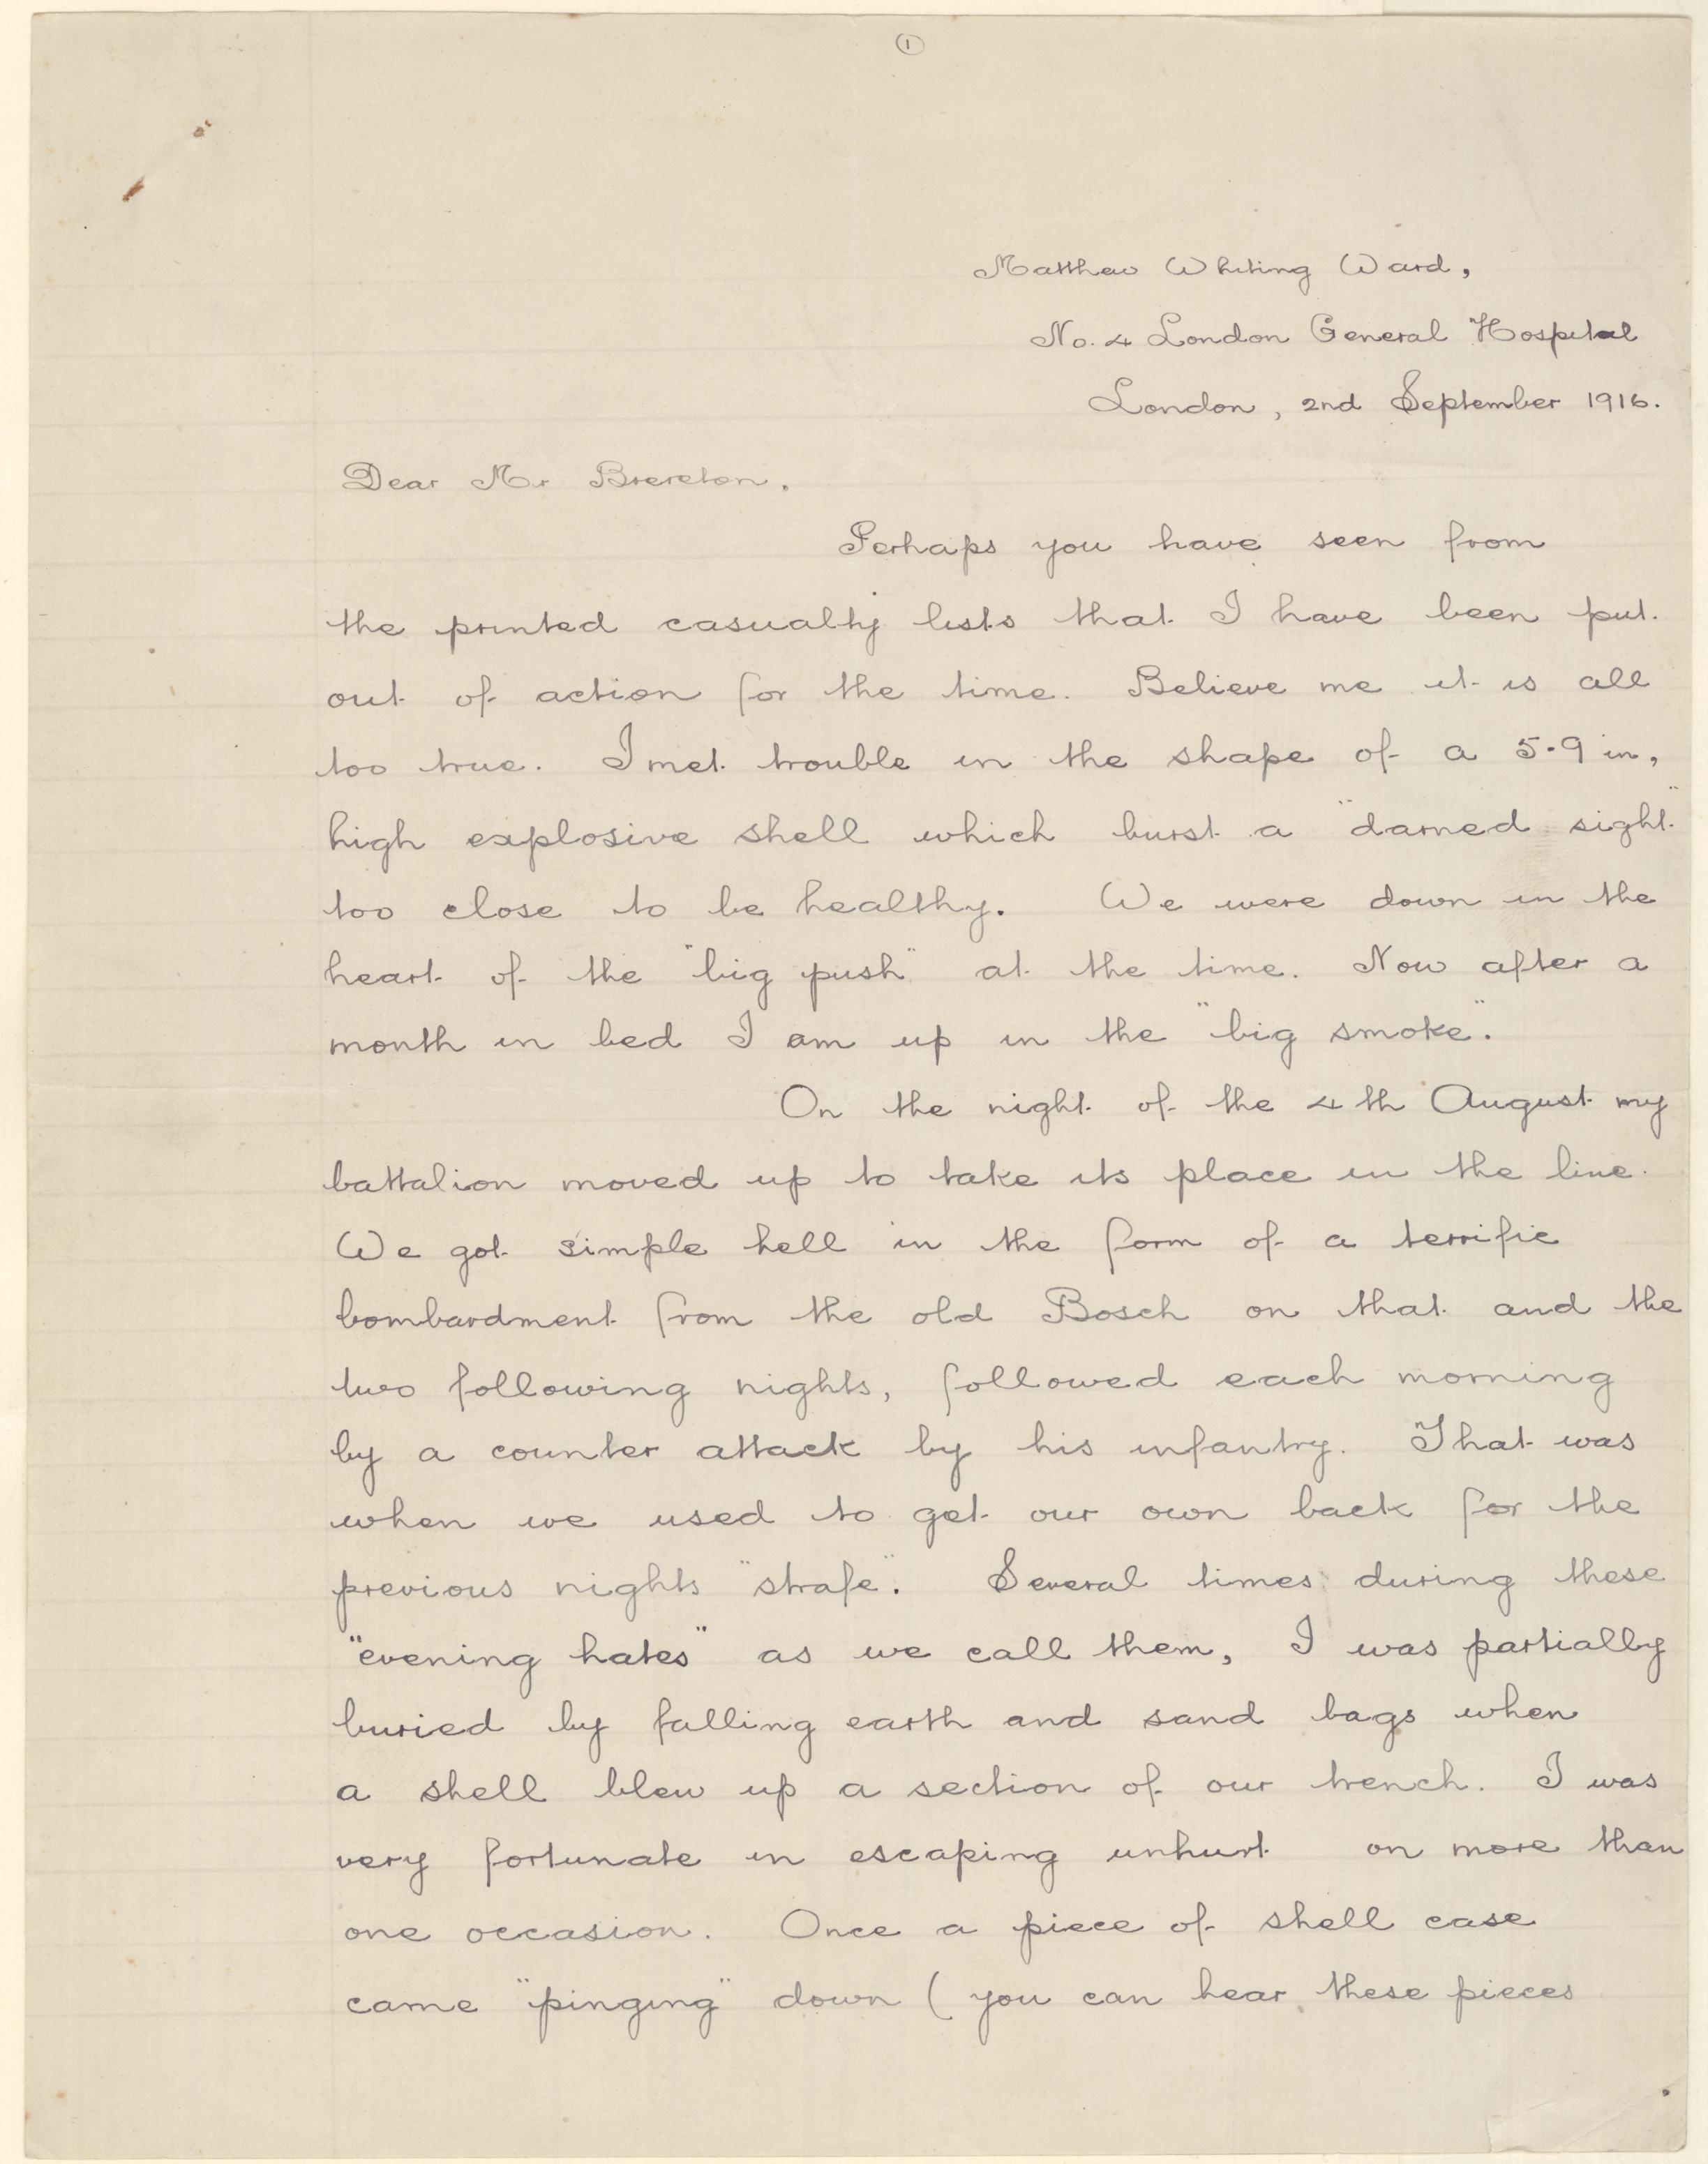 1
Matthew Whiting Ward,
No. 4 London General Hospital
London, 2nd September 1916.
Dear Mr Brereton.
Perhaps you have seen from
the printed casualty lists that I have been put
out of action for the time. Believe me it is all
too true. I met trouble in the shape of a 5.9 in,
high explosive shell which burst a "darned sight"
too close to be healthy. We were down in the
heart of the "big push" at the time. Now after a
month in bed I am up in the "big smoke".
On the night of the 4th August my
battalion moved up to take its place in the line.
We got simple hell in the form of a terrific
bombardment from the old Bosch on that and the
two following nights, followed each morning
by a counter attack by his infantry. That was
when we used to get our own back for the
previous nights "strafe". Several times during these
"evening hates" as we call them, I was partially
buried by falling earth and sand bags when
a shell blew up a section of our trench. I was
very fortunate in escaping unhurt on more than
one occasion. Once a piece of shell case
came "pinging" down (you can hear these pieces